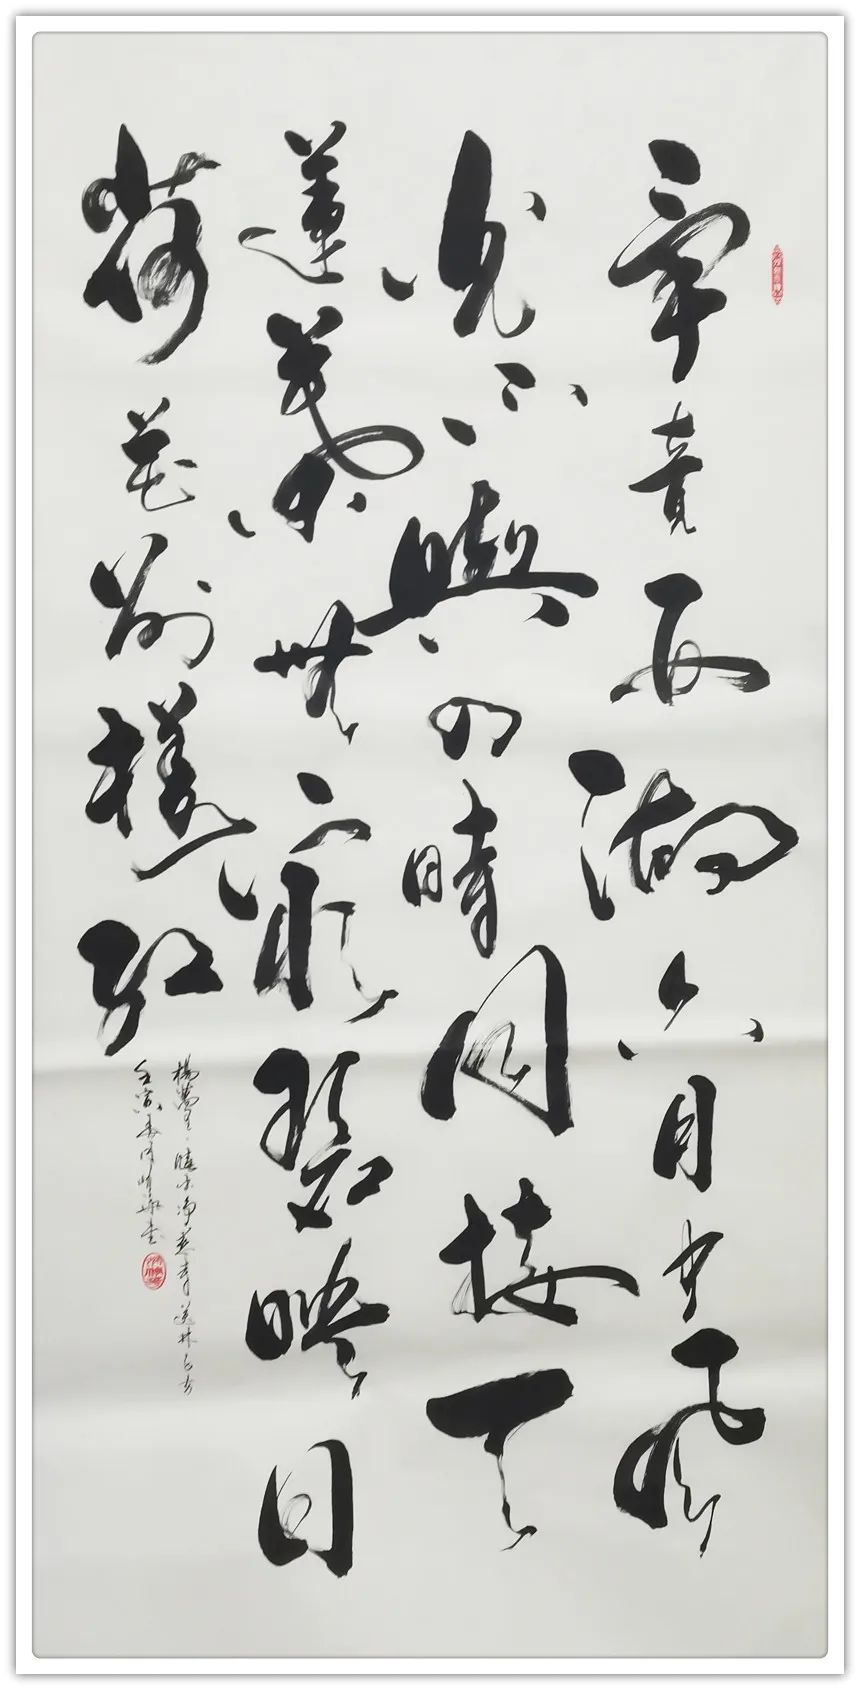 畢竟西湖六月中風
光不與四時同接天
蓮葉無窮碧映日
荷花別樣紅
楊萬里·曉出淨慈寺送林子方
壬寅春月